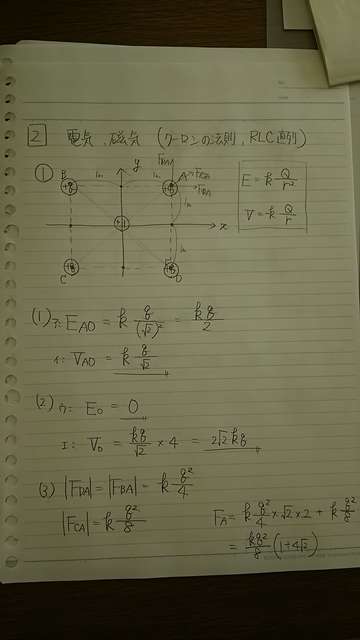 2 電気、磁気 (クーロンの法則、RLC直列)
① y
B 1m 1m A FBA FCA FDA
+q +q
1m
+1 x
1m
+q +q
C D
E = k Q/r²
V = k Q/r
(1) ア: EAO = k q/(√2)² = kq/2
イ: VAO = k q/√2
(2) ウ: E0 = 0
エ: V0 = kq/√2 × 4 = 2√2kq
(3) |FDA| = |FBA| = k q²/4
|FCA| = k q²/8
FA = k q²/4 × √2 × 2 + k q²/8
= kq²/8 (1+4√2)